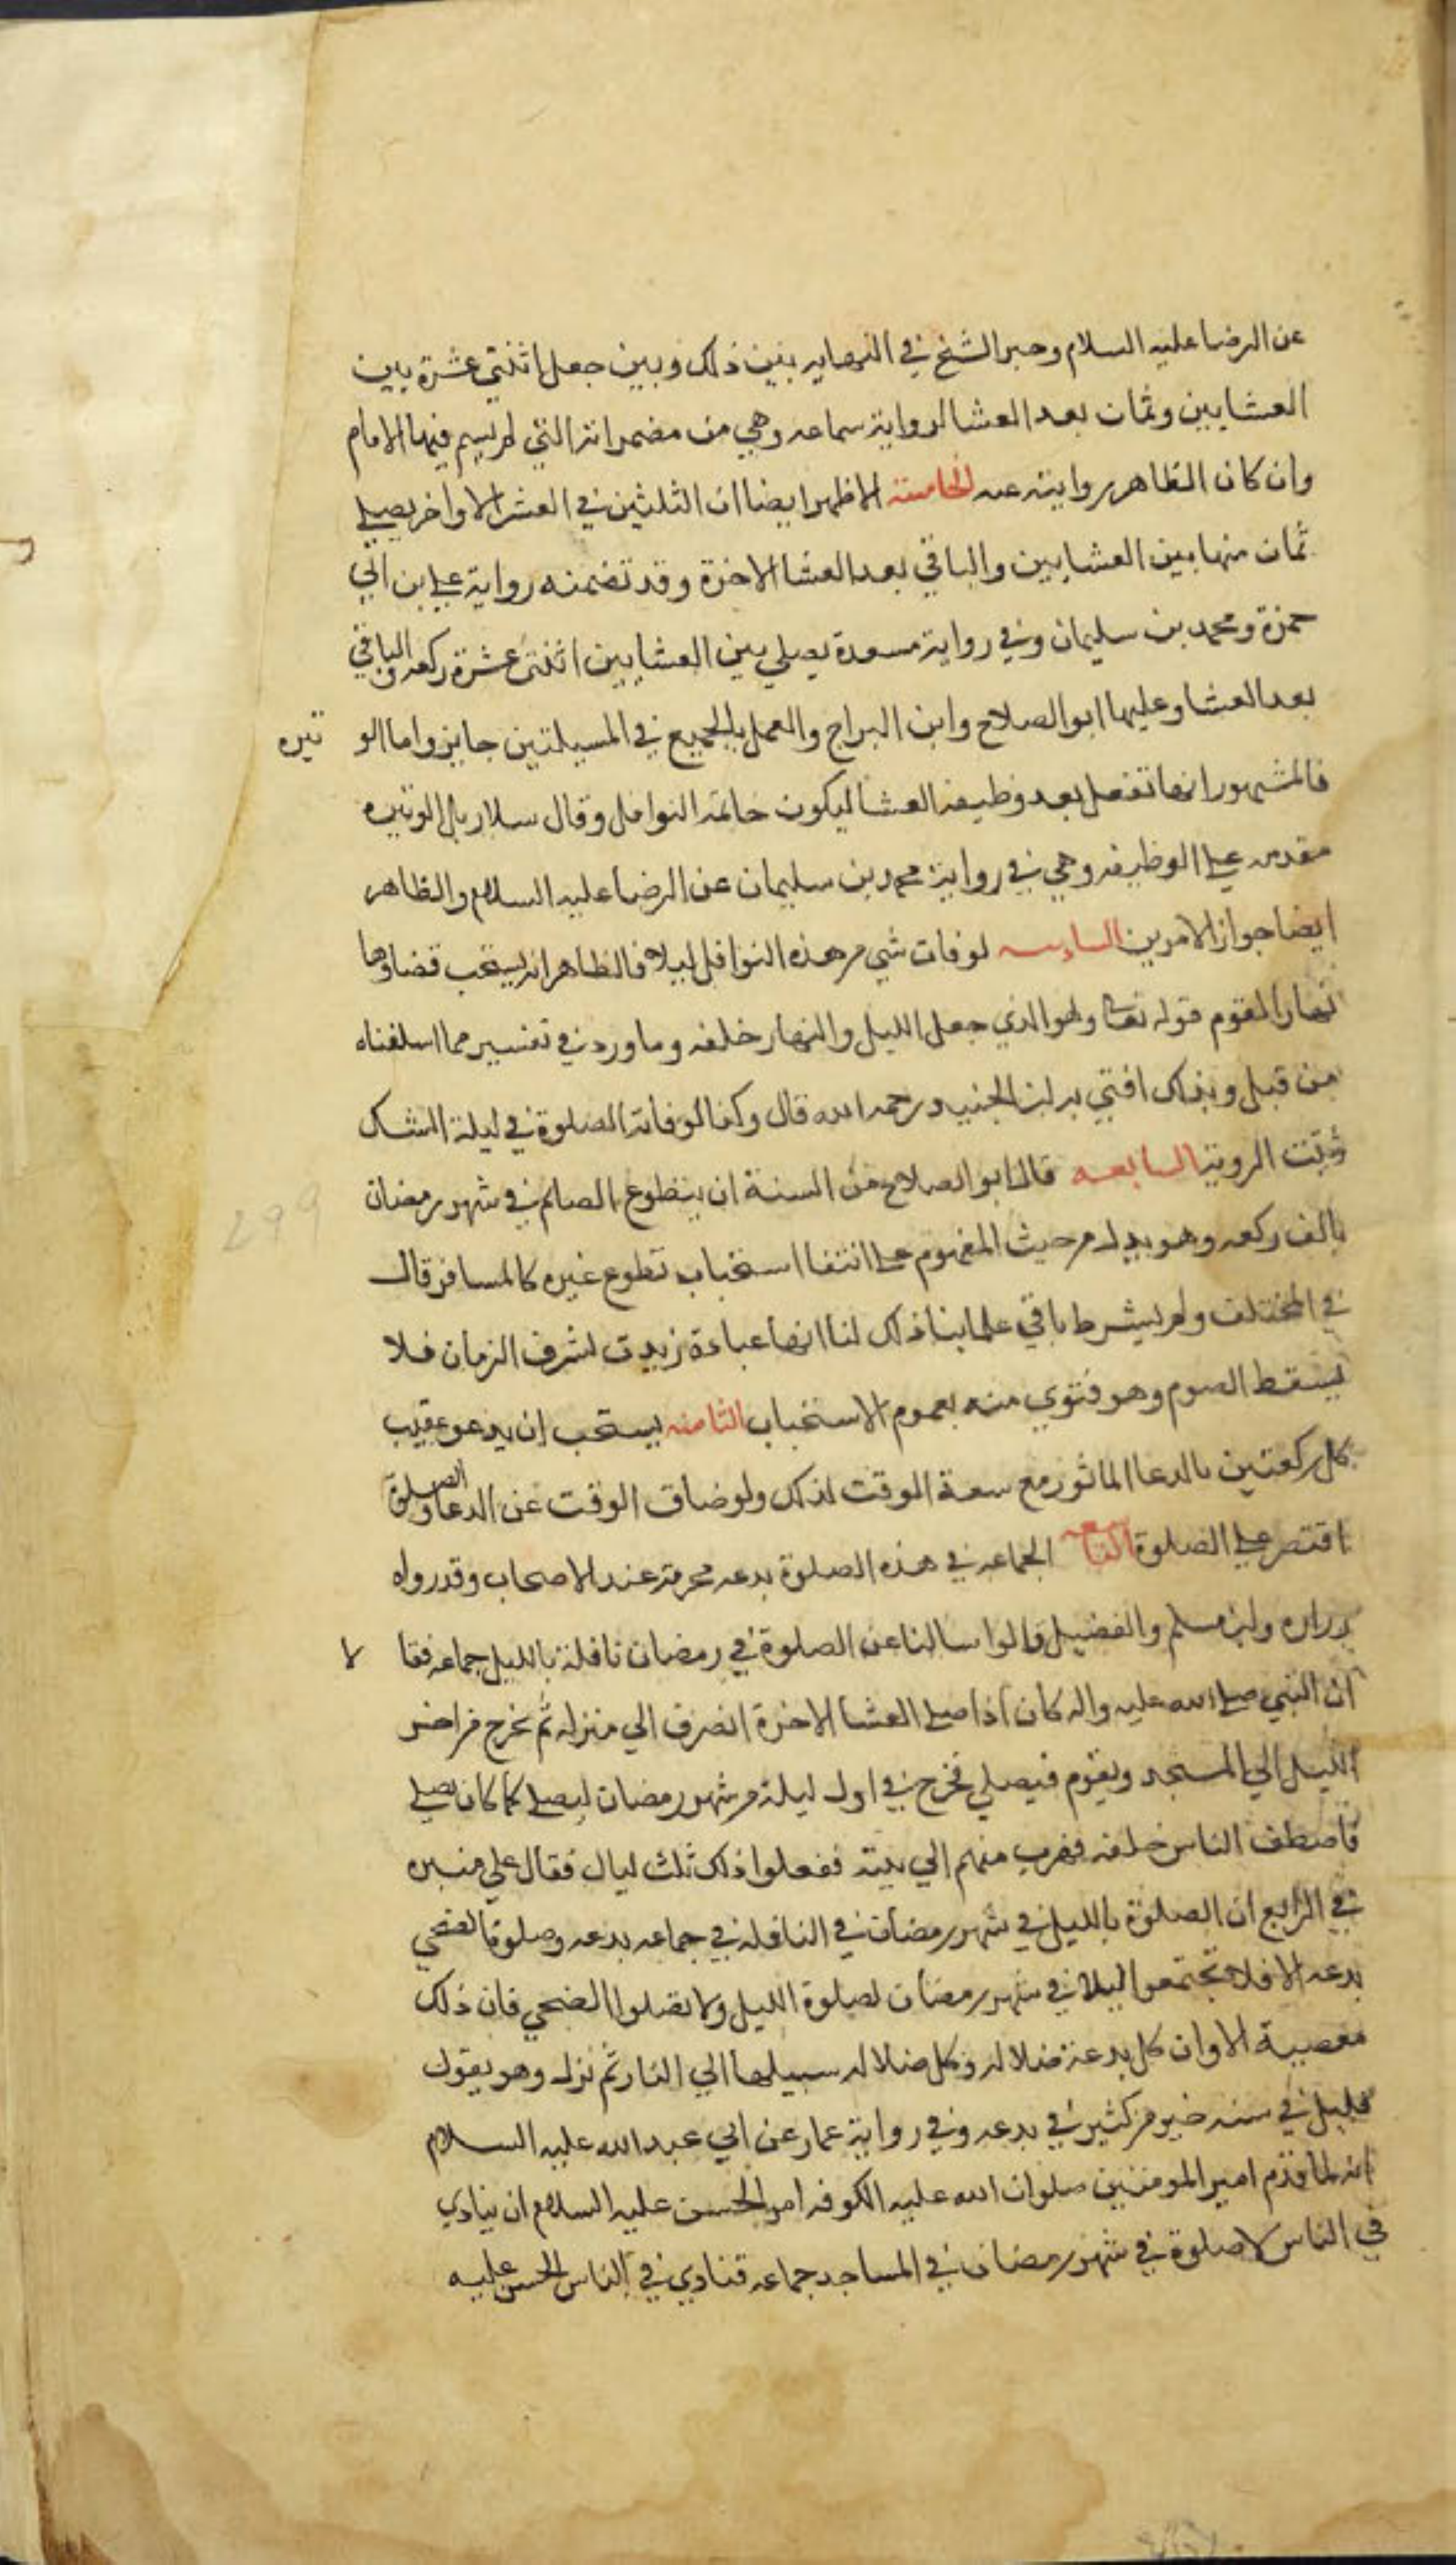 عن الرضا عليه السلام وخير الشيخ في النهايه بين ذلك وبين جعل اثنتي عشرة بين
العشايين وثمان بعد العشا لرواية سماعه وهي من مضمراته التي لم يسم فيها الامام
وان كان الظاهر روايته عنه الخامسة الاظهر ايضا ان الثلثين في العشر الاواخر يصلي
ثمان منها بين العشايين والباقي بعد العشا الاخرة وقد تضمنه رواية علي بن ابي
حمزة ومحمد بن سليمان وفي رواية مسعدة يصلي بين العشايين اثنتى عشرة ركعه والباقي
بعد العشا وعليها ابو الصلاح وابن البراج والعمل بالجميع في المسيلتين جايز واما الو تيره
فالمشهور انها تفعل بعد وظيفة العشا ليكون خاتمة النوافل وقال سلار بل الوتيره
مقدمه على الوظيفه وهي في رواية محمد بن سليمان عن الرضا عليه السلام والظاهر
ايضا جواز الامرين السادسه لو فات شي من هذه النوافل ليلا فالظاهر انه يستحب قضاوها
نهارا لعموم قوله تعالى وهو الذي جعل الليل والنهار خلفه وما ورد في تفسير مما اسلفناه
من قبل وبذلك افتي به ابن الجنيد رحمه الله قال وكذا لو فاته الصلوة في ليلة الشك
وثبتت الروية السابعه قال ابو الصلاح من السنة ان يتطوع الصايم في شهر رمضان
بالف ركعه وهو يدل من حيث المفهوم على انتفا استحباب تطوع غيره كالمسافر قال
في المختلف ولم يشرط باقي علماينا ذلك لنا انها عبادة زيدت لشرف الزمان فلا
يسقط الصوم وهو فتوى منه بعموم الاستحباب الثامنه يستحب ان يدعو عقيب
كل ركعتين بالدعا الماثور مع سعة الوقت لذلك ولو ضاق الوقت عن الدعا والصلوة
اقتصر على الصلوة التاسعه الجماعه في هذه الصلوة بدعه محرمة عند الاصحاب وقد رواه
زراره وابن مسلم والفضيل قالوا سالنا عن الصلوة في رمضان نافلة بالليل جماعه فقا لا
ان النبي صلى الله عليه واله كان اذا صلى العشا الاخرة انصرف الي منزله ثم يخرج من اخر
الليل الي المسجد ويقوم فيصلي فخرج في اول ليلة من شهر رمضان ليصلي كما كان يصلي
فاصطف الناس خلفه فهرب منهم الي بيته ففعلوا ذلك ثلث ليال فقال علي منبره
في الرابع ان الصلوة بالليل في شهر رمضان في النافله في جماعه بدعه وصلوة الضحي
بدعه الا فلا تجتمعوا ليلا في شهر رمضان لصلوة الليل ولا تصلوا الضحي فان ذلك
معصية الا وان كل بدعة ضلاله وكل ضلاله سبيلها الي النار ثم نزل وهو يقول
قليل في سنه خير من كثير في بدعه وفي رواية عمار عن ابي عبد الله عليه السلام
انه لما قدم امير المومنين صلوات الله عليه الكوفه امر الحسن عليه السلام ان ينادي
في الناس لا صلوة في شهر رمضان في المساجد جماعه فنادي في الناس الحسن عليه
299